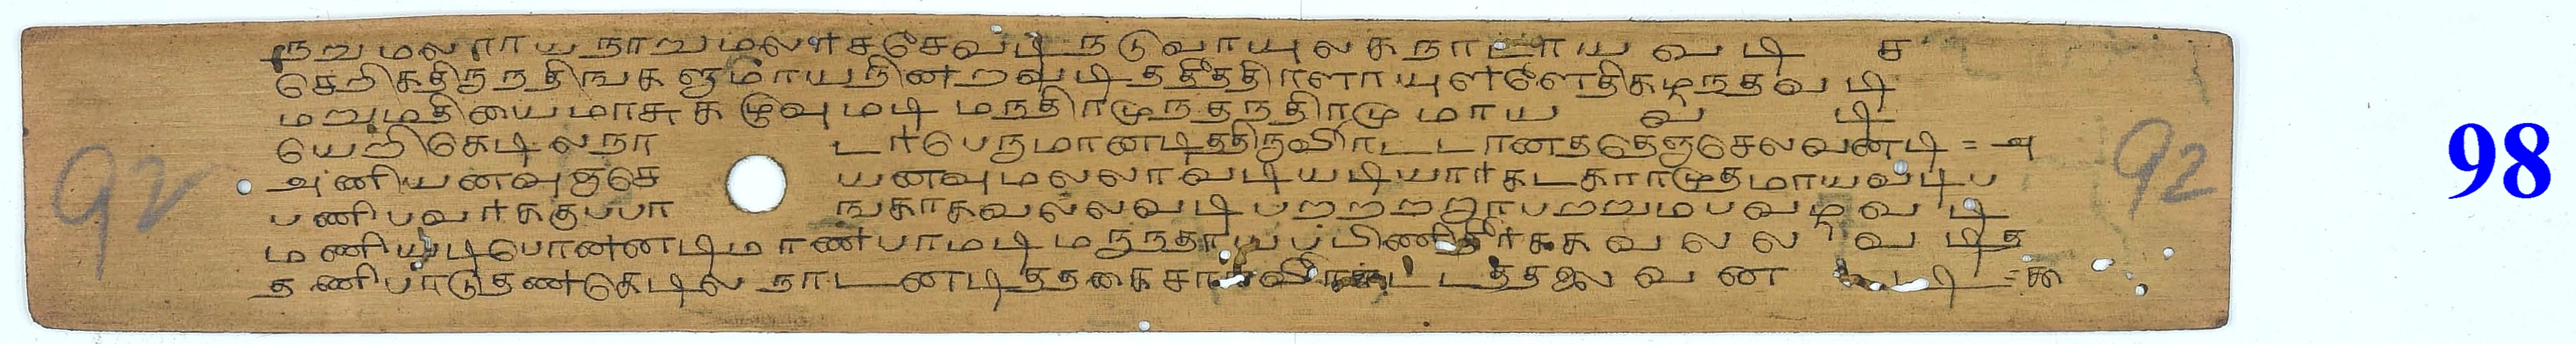 நறுமலராய நாறுமலாசசேவடி நடுவாயுலகநாடாய வ டி ச
செறிகதிருநதிஙகளுமாயநினறவடி தததீததிரளாயுளளேதிகழநதவ டி
மறுமதியைமாசுகழுவுமடி மநதிரமுநதநதிரமுமாய வ டி
யெறிகெடிலநா டரபெருமானடிததிருவீரடடானததெஞசெலவனடி = அ
அணியனவுஞசே யனவுமலலாவடியடியாரகடகாரமுதமாயவடிப
பணிபவரககுபபா ஙகாகவலலவடி பறறறறாபறறுமபவழவ டி
மணியடிபொனனடிமாணபாமடி மருநதாயபபிணிதீரகக வ ல ல வ டித
தணிபாடுதணகெடில நாடனடிததகைசாரவீர டடததலைவன டி = ௯
92
92
98